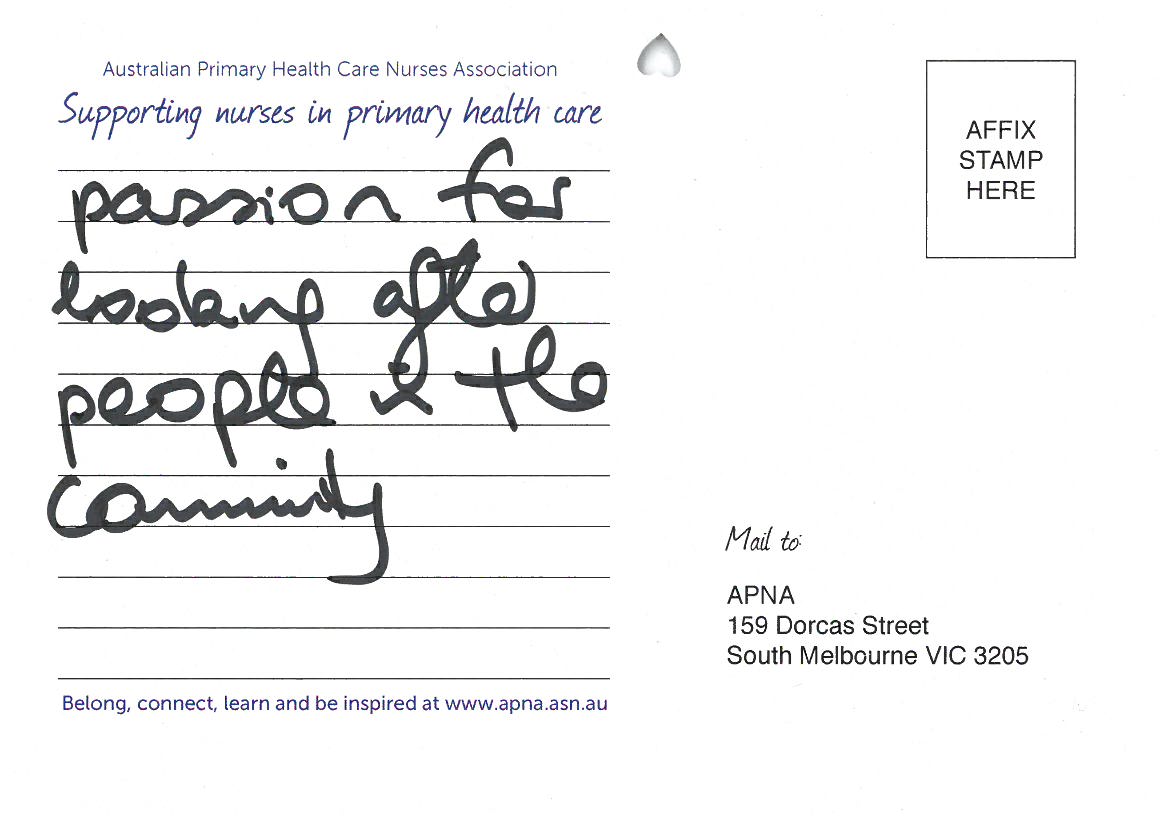 Australian Primary Health Care Nurses Association
Supporting nurses in primary health care
passion for
looking after
people in the
community
Belong, connect, learn and be inspired at www.apna.asn.au
AFFIX
STAMP
HERE
Mail to:
APNA
159 Dorcas Street
South Melbourne VIC 3205